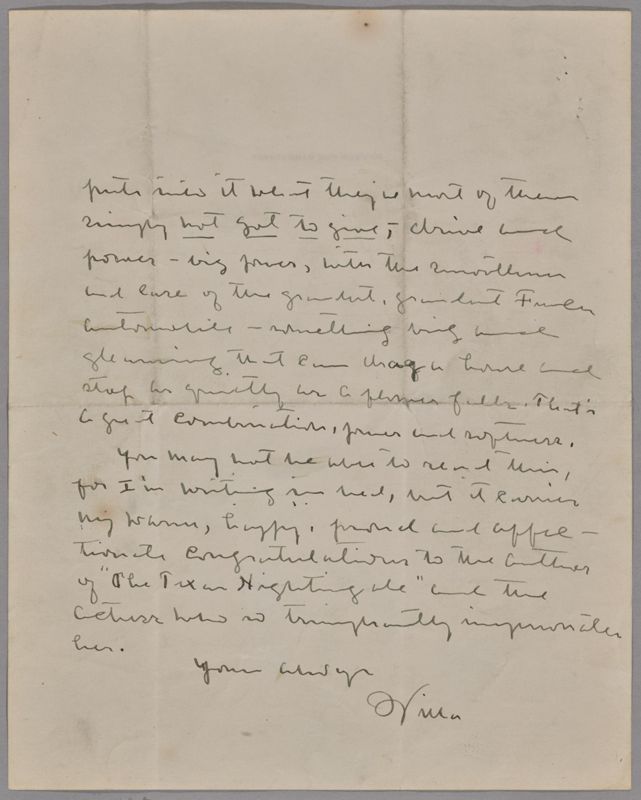 puts into it what they've most of them
simply not got to give, – drive and
power – big power, with the smoothness
and ease of the grandest, grandest French
automobile – something big and
gleaming, that can drag a house and
stop as quietly as a flower falls. That's
a great combination, power and softness.
You may not be able to read this,
for I'm writing in bed, but it carries
my warm, happy, proud and affec-
tionate congratulations to the author
of "The Texas Nightingale" and the
actress who so triumphantly impersonates
her.
Yours always
Willa